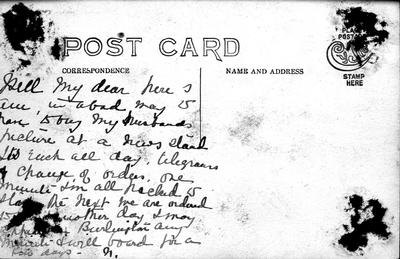 POST CARD
CORRESPONDENCE
NAME AND ADDRESS
PLACE
STAMP
HERE
Well My dear here I
am, in a bad way to
have to buy My husbands
picture at a news stand
Its such all day, telegrams
& change of orders, one
minute Im all packed to
the next we are ordered
another day I may
Burlington any
minute I will board for a
few days - M.